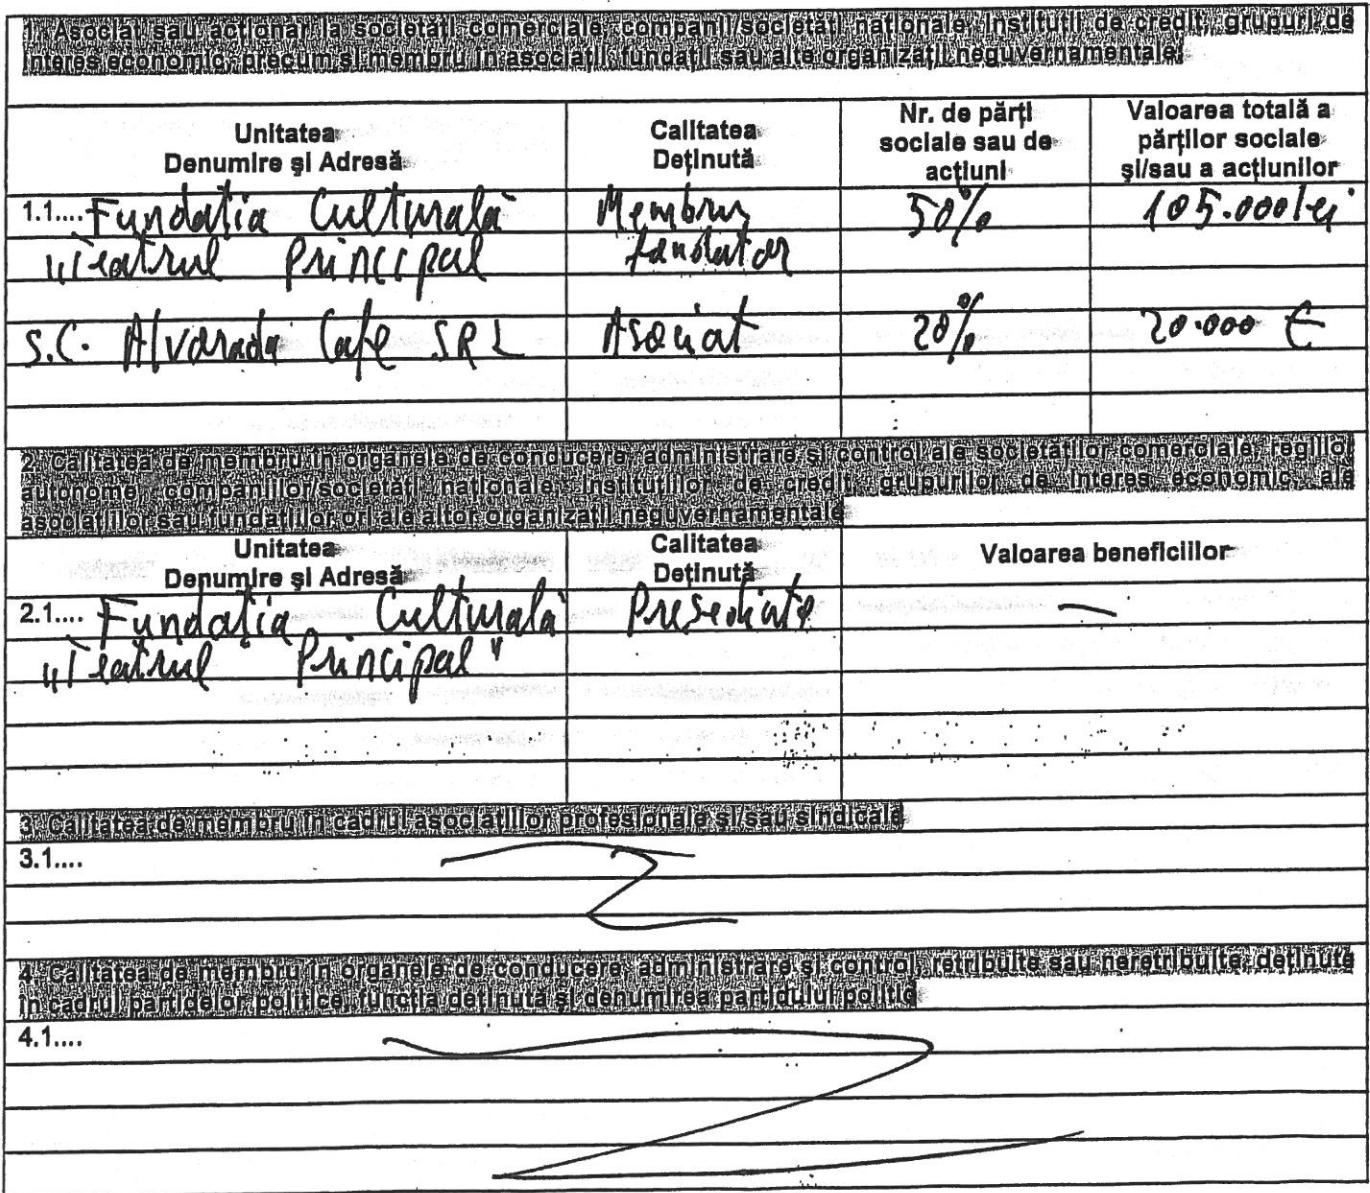 1. Asociat sau acţionar la societăţi comerciale, companii/societăţi naţionale, instituţii de credit, grupuri de
interes economic, precum şi membru în asociaţii, fundaţii sau alte organizaţii neguvernamentale:
Unitatea
Denumire şi Adresă
Calitatea
Deţinută
Nr. de părţi
sociale sau de
acţiuni
Valoarea totală a
părţilor sociale
şi/sau a acţiunilor
1.1.... Fundaţia Culturală Membru 50% 105.000 lei
"Teatrul Principal fondator
S.C. Alvarada Cafe SRL Asociat 20% 20.000 €
2. Calitatea de membru în organele de conducere, administrare şi control ale societăţilor comerciale, regiilor
autonome, companiilor/societăţi naţionale, instituţiilor de credit, grupurilor de interes economic, ale
asociaţiilor sau fundaţiilor ori ale altor organizaţii neguvernamentale
Unitatea
Denumire şi Adresă
Calitatea
Deţinută
Valoarea beneficiilor
2.1.... Fundaţia Culturală Presedinte —
"Teatrul Principal"
3. Calitatea de membru în cadrul asociaţiilor profesionale şi/sau sindicale
3.1....
4. Calitatea de membru în organele de conducere, administrare şi control, retribuite sau neretribuite, deţinute
în cadrul partidelor politice, funcţia deţinută şi denumirea partidului politic
4.1....